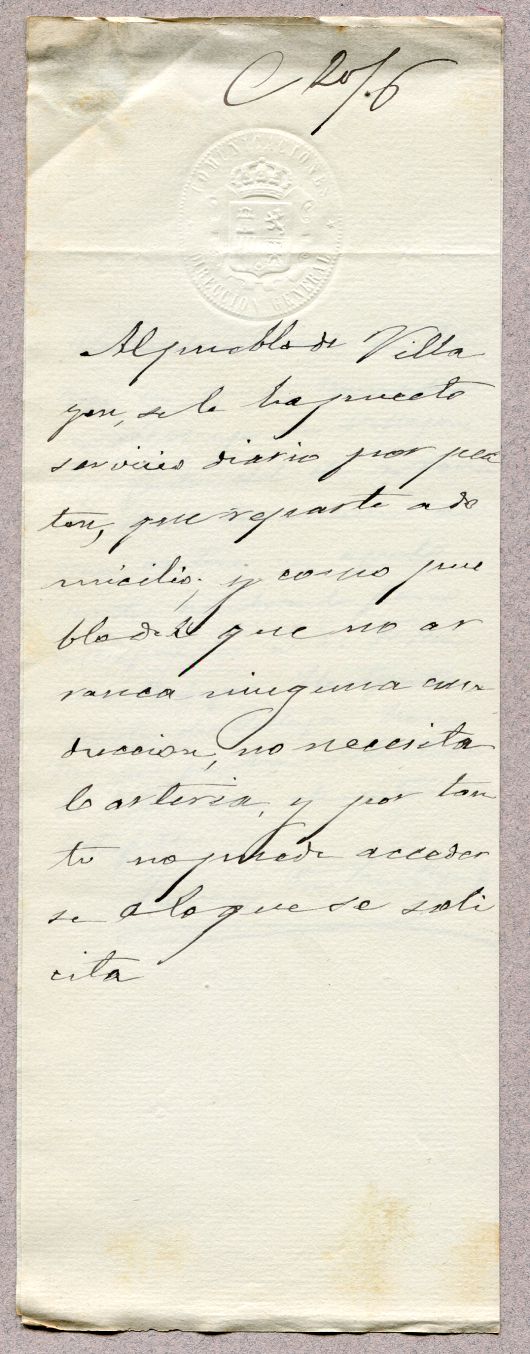 C 20/6
COMUNICACIONES
DIRECCION GENERAL
Al pueblo de Villa
yon, se le ha puesto
servicio diario por pea
ton, que reparte a do
micilio; y como pue
blo del que no ar
ranca ninguna con
duccion, no necesita
carteria, y por tan
to no puede acceder
se a lo que se soli
cita